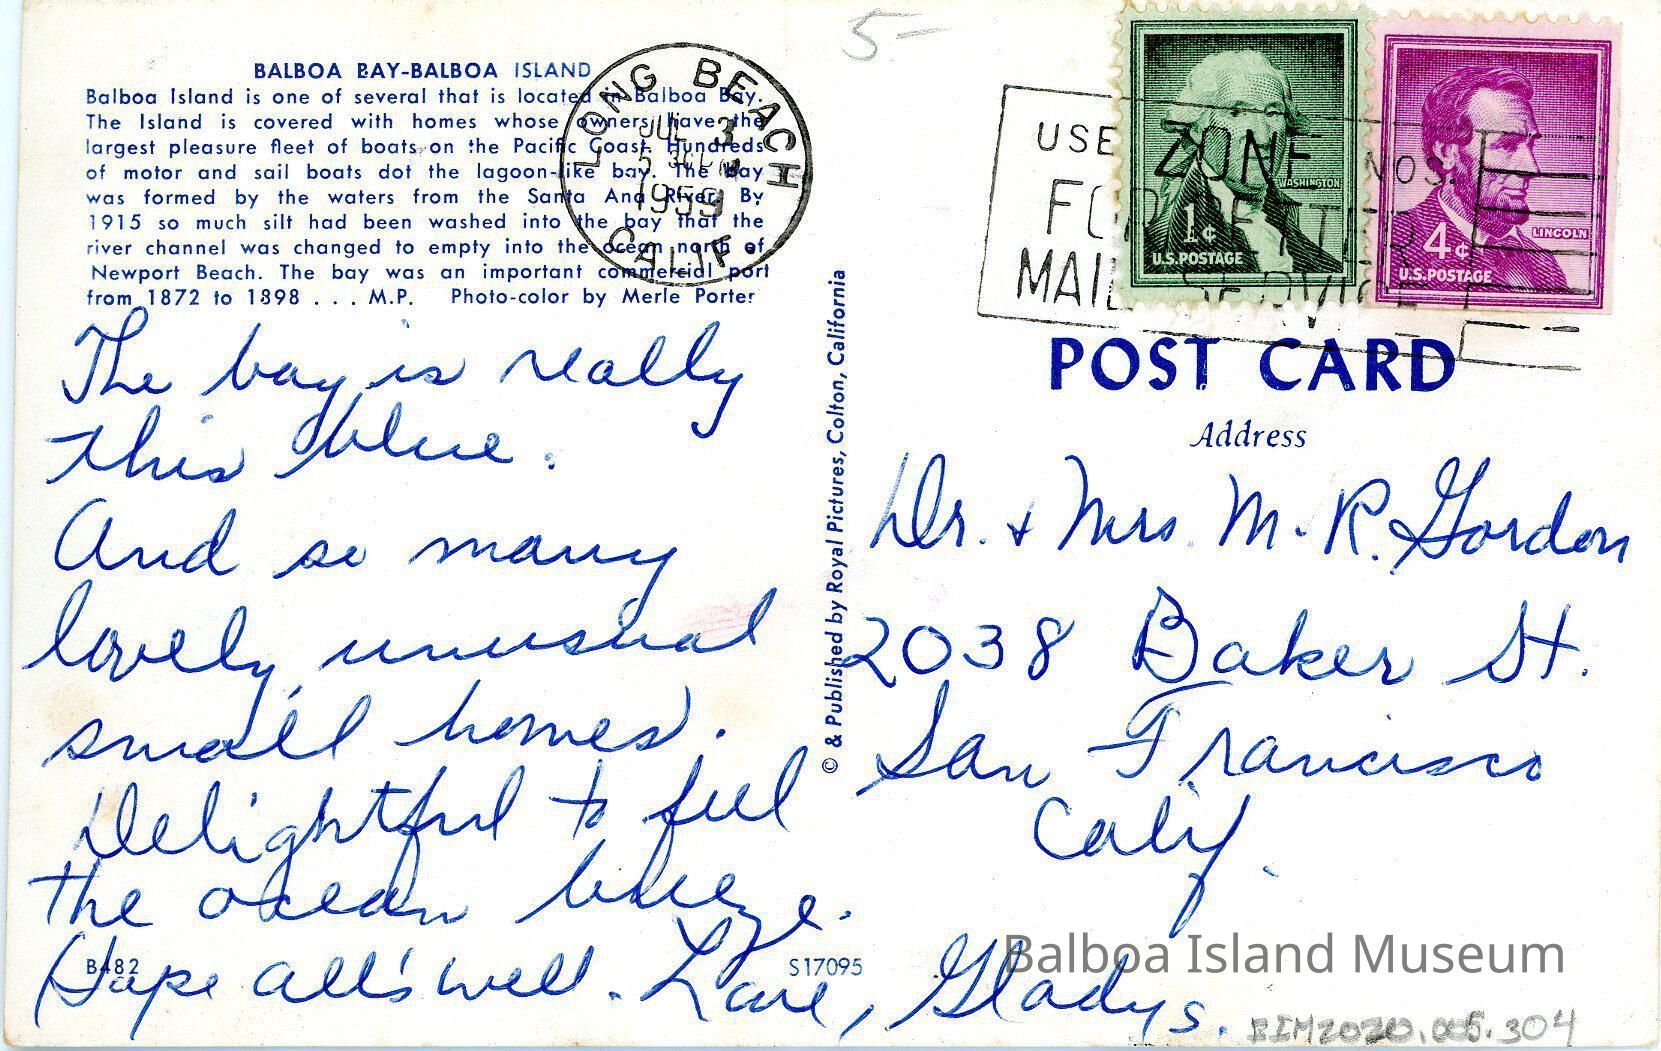 5-
BALBOA BAY-BALBOA ISLAND
Balboa Island is one of several that is located in Balboa Bay.
The Island is covered with homes whose owners have the
largest pleasure fleet of boats on the Pacific Coast. Hundreds
of motor and sail boats dot the lagoon-like bay. The Bay
was formed by the waters from the Santa Ana River. By
1915 so much silt had been washed into the bay that the
river channel was changed to empty into the ocean north of
Newport Beach. The bay was an important commercial port
from 1872 to 1898 . . . M.P. Photo-color by Merle Porter
LONG BEACH
JUL 3
1959
CALIF.
The bay is really
this blue.
And so many
lovely, unusual
small homes.
Delightful to feel
the ocean breeze.
Hope all's well. Love, Gladys.
B482
S17095
© & Published by Royal Pictures, Colton, California
USE ZONE NOS.
FOR BETTER
MAIL SERVICE
WASHINGTON
1¢
U.S. POSTAGE
LINCOLN
4¢
U.S. POSTAGE
POST CARD
Address
Dr. & Mrs. M. R. Gordon
2038 Baker St.
San Francisco
Calif.
Balboa Island Museum
BIM2020.005.304